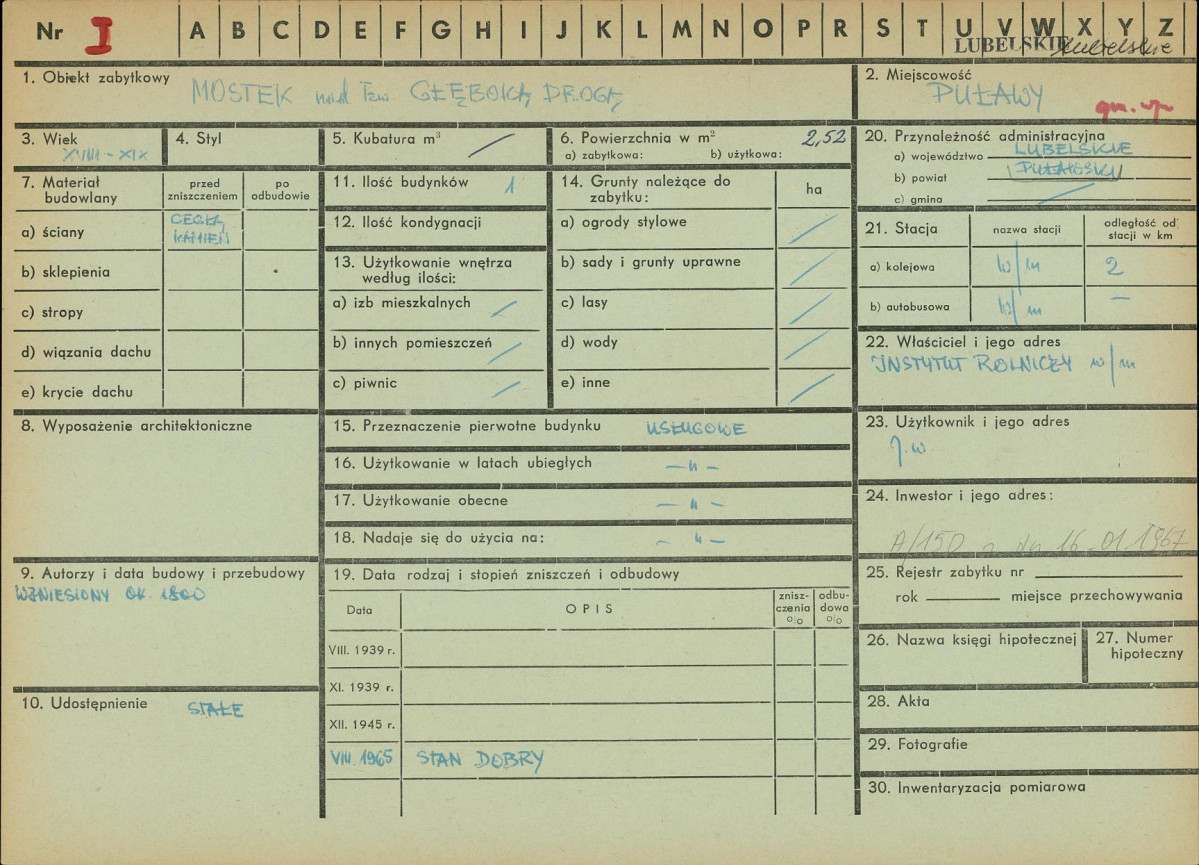 Nr I A B C D E F G H I J K L M N O P R S T U V W X Y Z
LUBELSKIE lubelskie
1. Obiekt zabytkowy
MOSTEK nad tzw. GŁĘBOKĄ DROGĄ
2. Miejscowość
PUŁAWY
3. Wiek
XVIII – XIX
4. Styl
5. Kubatura m³
6. Powierzchnia w m² 2,52
a) zabytkowa: b) użytkowa:
7. Materiał budowlany
przed zniszczeniem
po odbudowie
a) ściany
CEGŁA, KAMIEŃ
b) sklepienia
c) stropy
d) wiązania dachu
e) krycie dachu
8. Wyposażenie architektoniczne
9. Autorzy i data budowy i przebudowy
WZNIESIONY OK. 1800
10. Udostępnienie STAŁE
11. Ilość budynków 1
12. Ilość kondygnacji
13. Użytkowanie wnętrza
według ilości:
a) izb mieszkalnych
b) innych pomieszczeń
c) piwnic
14. Grunty należące do
zabytku:
ha
a) ogrody stylowe
b) sady i grunty uprawne
c) lasy
d) wody
e) inne
15. Przeznaczenie pierwotne budynku USŁUGOWE
16. Użytkowanie w latach ubiegłych – „ –
17. Użytkowanie obecne – „ –
18. Nadaje się do użycia na: – „ –
19. Data rodzaj i stopień zniszczeń i odbudowy
Data
OPIS
znisz-
czenia
o/o
odbu-
dowa
o/o
VIII. 1939 r.
XI. 1939 r.
XII. 1945 r.
VIII. 1965 STAN DOBRY
20. Przynależność administracyjna
a) województwo LUBELSKIE
b) powiat PUŁAWSKI
c) gmina
21. Stacja
nazwa stacji
odległość od
stacji w km
a) kolejowa w/m 2
b) autobusowa w/m –
22. Właściciel i jego adres
INSTYTUT ROLNICZY w/m
23. Użytkownik i jego adres
J.w.
24. Inwestor i jego adres:
A/150 z dn 16.01.1967
25. Rejestr zabytku nr
rok miejsce przechowywania
26. Nazwa księgi hipotecznej
27. Numer
hipoteczny
28. Akta
29. Fotografie
30. Inwentaryzacja pomiarowa